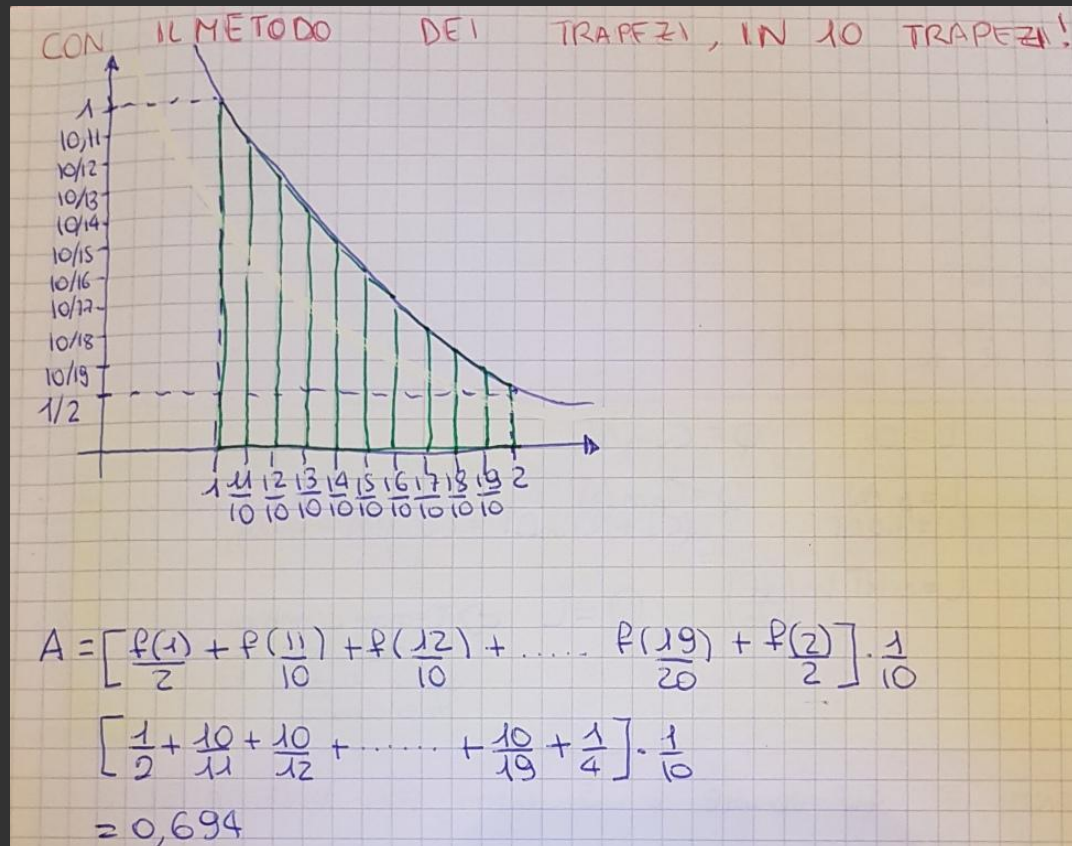 CON IL METODO DEI TRAPEZI, IN 10 TRAPEZI!
1
10,11
10/12
10/13
10/14
10/15
10/16
10/17
10/18
10/19
1/2
1 11/10 12/10 13/10 14/10 15/10 16/10 17/10 18/10 19/10 2
A = [f(1)/2 + f(11)/10 + f(12)/10 + ..... f(19)/20 + f(2)/2] · 1/10
[1/2 + 10/11 + 10/12 + ...... + 10/19 + 1/4] · 1/10
= 0,694